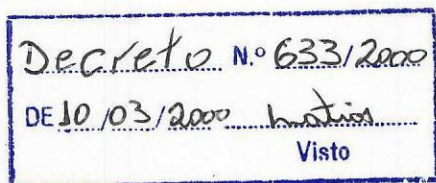 Decreto N.º 633/2000
DE 10/03/2000
Visto